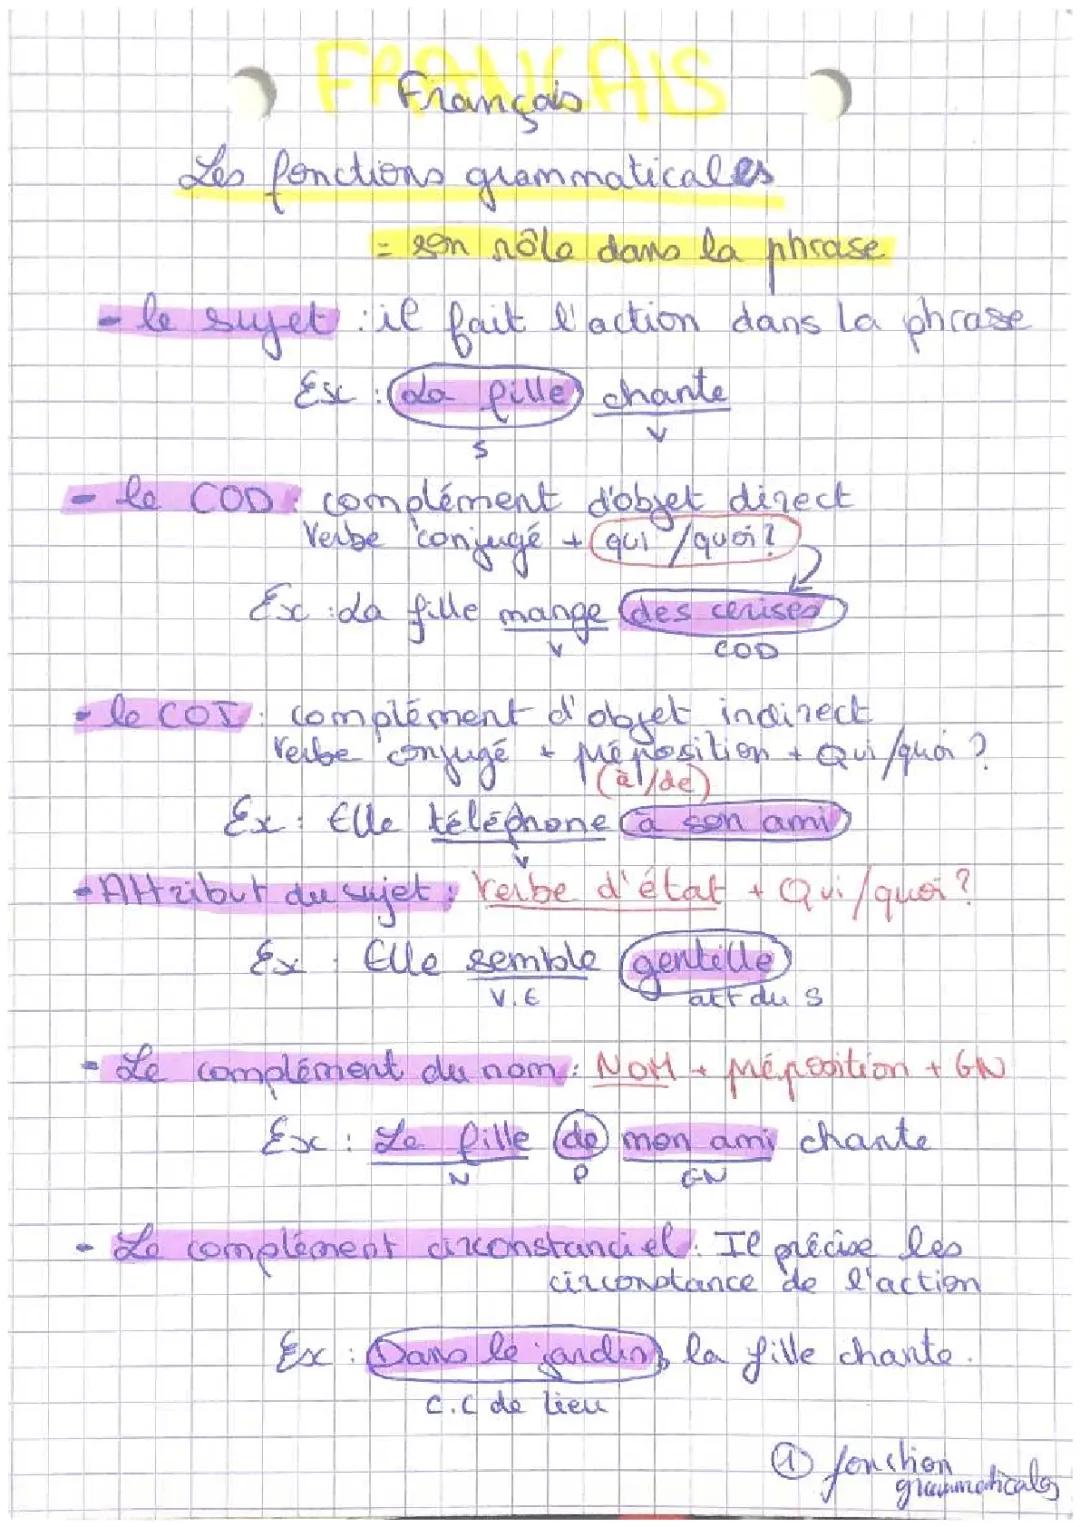 FRANÇAIS
Français
Les fonctions grammaticales
= son rôle dans la phrase
- le sujet : il fait l'action dans la phrase
Ex : La fille chante
S V
- le COD : complément d'objet direct
Verbe conjugé + qui / quoi ?
Ex : La fille mange des cerises
V COD
- le COI : complément d'objet indirect
Verbe conjugé + préposition + Qui/quoi ?
(à/de)
Ex : Elle téléphone à son ami
V
- Attribut du sujet : Verbe d'état + Qui/quoi ?
Ex : Elle semble gentille
V.E att du S
- Le complément du nom : NOM + préposition + GN
Ex : Le fille de mon ami chante
N P GN
- Le complément circonstanciel : Il précise les
circonstance de l'action
Ex : Dans le jardin, la fille chante.
C.C de lieu
① fonction
grammaticales